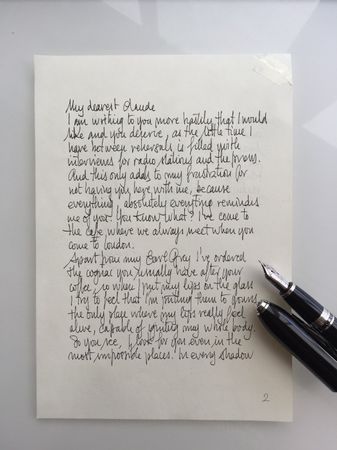 My dearest Claude
I am writing to you more hastily that I would
like and you deserve, as the little time I
have between rehearsals is filled with
interviews for radio stations and the press.
And this only adds to my frustration for
not having you here with me, because
everything, absolutely everything reminds
me of you! You know what? I've come to
the cafe where we always meet when you
come to London.
Apart from my Earl Gray I've ordered
the cognac you usually have after your
coffee, so when I put my lips on the glass
I try to feel that I'm putting them to yours
the only place where my lips really feel
alive, capable of igniting my whole body.
So you see, I look for you even in the
most impossible places. In every shadow
2